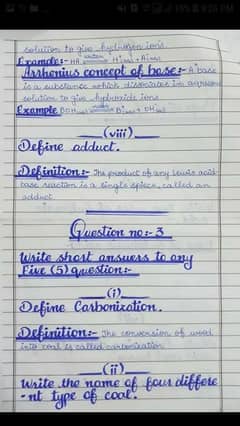 solution to give hydrogen ions.
Example:- HA water H⁺(aq) + A⁻(aq)
Arrhenius concept of base:- A base
is a substance which dissociates in aqueous
solution to give hydroxide ions.
Example BOH water B⁺(aq) + OH⁻(aq)
(viii)
Define adduct.
Definition:- The product of any Lewis acid
base reaction is a single specie, called an
adduct
Question no:- 3
Write short answers to any
Five (5) question:-
(i)
Define Carbonization.
Definition:- The conversion of wood
into coal is called carbonization
(ii)
Write the name of four differe
-nt type of coal.